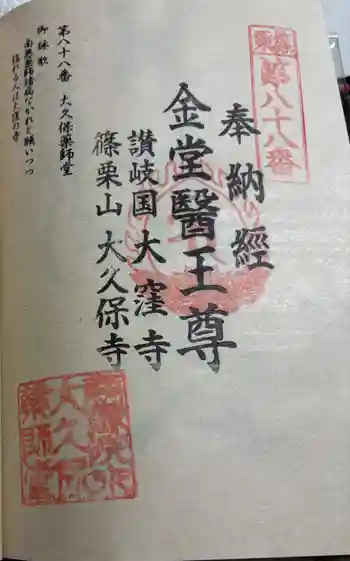 第八十八番
奉納經
金堂醫王尊
讃岐国大窪寺
篠栗山大久保寺
第八十八番 大久保薬師堂
御詠歌
南無薬師諸病なかれと願いつつ
詣れる人は大窪の寺
大久保
薬師堂